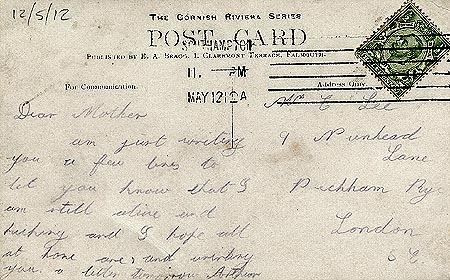 12/5/12
THE CORNISH RIVIERA SERIES
POST CARD
PUBLISHED BY E. A. BRAGG, 1, CLAREMONT TERRACE, FALMOUTH.
S'THAMPTON
11. PM
MAY 12 12
For Communication.
Address Only.
Dear Mother
am just writing
you a few lines to
let you know that I
am still alive and
kicking and I hope all
at home are and writing
you a letter tomorrow Arthur
Mrs C Lee
9 Nunhead
Lane
Peckham Rye
London
S.E.